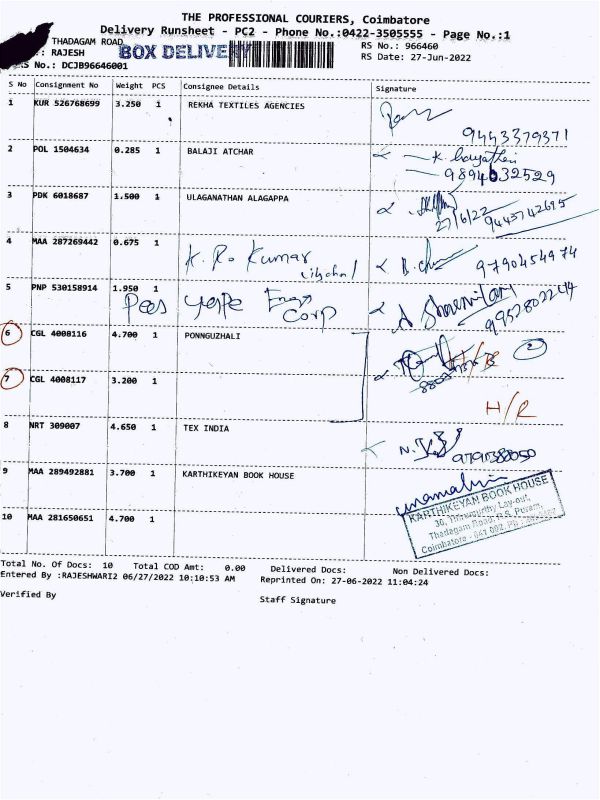 THE PROFESSIONAL COURIERS, Coimbatore
Delivery Runsheet - PC2 - Phone No.:0422-3505555 - Page No.:1
THADAGAM ROAD
: RAJESH
BOX DELIVERY
RS No.: 966460
RS Date: 27-Jun-2022
RS No.: DCJB96646001
S No Consignment No Weight PCS Consignee Details Signature
1 KUR 526768699 3.250 1 REKHA TEXTILES AGENCIES
9443379371
2 POL 1504634 0.285 1 BALAJI ATCHAR
9894632529
3 PDK 6018687 1.500 1 ULAGANATHAN ALAGAPPA
27/6/22 9443742695
4 MAA 287269442 0.675 1 K. R. Kumar
9790454974
5 PNP 530158914 1.950 1 Pees
Engg Corp
9952802244
6 CGL 4008116 4.700 1 PONNGUZHALI
H/R 2
7 CGL 4008117 3.200 1
H/R
8 NRT 309007 4.650 1 TEX INDIA
9 MAA 289492881 3.700 1 KARTHIKEYAN BOOK HOUSE
KARTHIKEYAN BOOK HOUSE
Thadagam Road, R.S. Puram,
Coimbatore - 641 002.
10 MAA 281650651 4.700 1
Total No. Of Docs: 10 Total COD Amt: 0.00 Delivered Docs: Non Delivered Docs:
Entered By :RAJESHWARI2 06/27/2022 10:10:53 AM Reprinted On: 27-06-2022 11:04:24
Verified By
Staff Signature